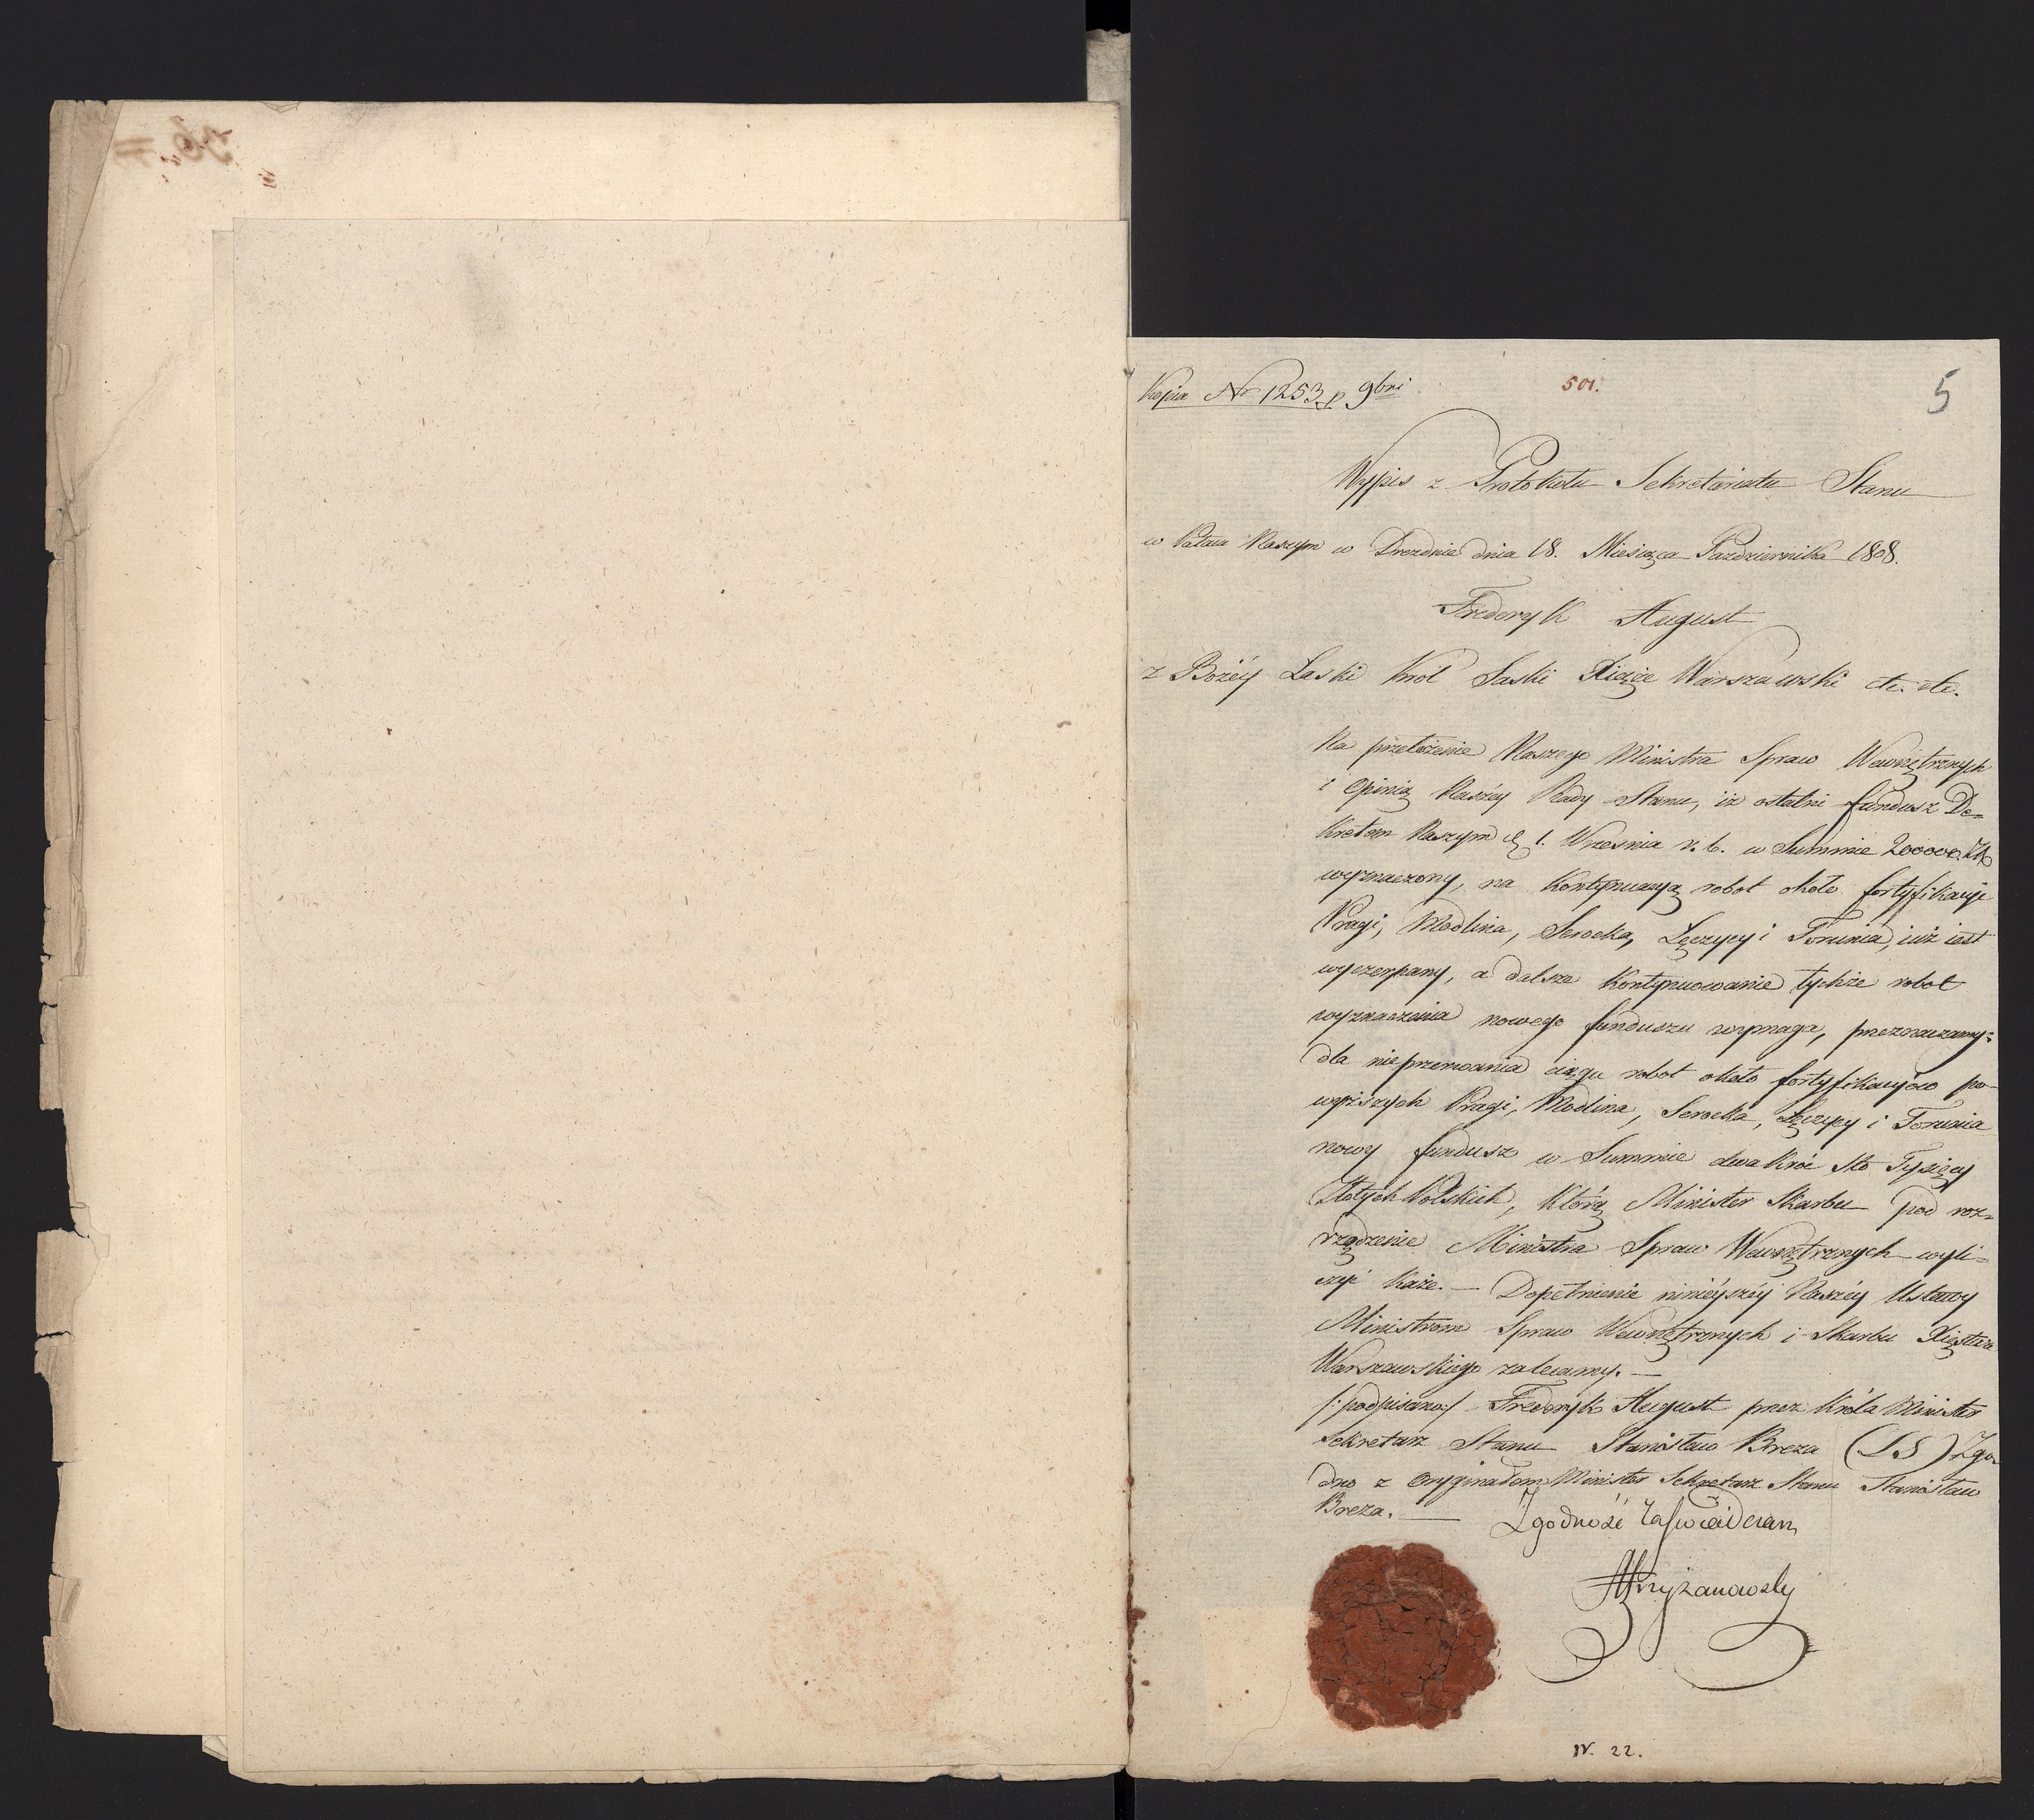 Kopia Nr 1253 9bri
501.
5
Wypis z Protokołu Sekretariatu Stanu
w Pałacu Naszym w Dreznie dnia 18. Miesiąca Pazdziernika 1808.
Frederyk August
z Bożéy Łaski Krol Saski Xiąże Warszawski etc. etc.
Na przełożenie Naszego Ministra Spraw Wewnętrznych
i Opinią Naszéy Rady Stanu, iż ostatni fundusz De=
kretem Naszym 1. Wresnia r. b. w Summie 200000 Zł
wyznaczony, na kontynuacyą robot około fortyfikacyi
Pragi, Modlina, Serocka, Łęczycy i Torunia, iuż iest
wyczerpany, a dalsze kontynuowanie tychże robot
wyznaczenia nowego funduszu wymaga, przeznaczamy:
dla nieprzerwania ciągu robot około fortyfikacyiow po-
wyższych Pragi, Modlina, Serocka, Łęczycy i Torunia
nowy fundusz w Summie dwakroć sto Tysięcy
Złotych Polskich, którą Minister Skarbu pod roz=
rządzenie Ministra Spraw Wewnętrznych wyli=
czyć każe. — Dopełnienie ninieyszéy Naszéy Ustawy
Ministrom Spraw Wewnętrznych i Skarbu Xięstwa
Warszawskiego zalecamy. —
/:podpisano:/ Frederyk August przez Króla Minister
Sekretarz Stanu Stanisław Breza (LS) Zgo-
dno z Oryginałem Minister Sekretarz Stanu Stanisław
Breza. —
Zgodność zaświadczam
Krzyżanowsky
N. 22.